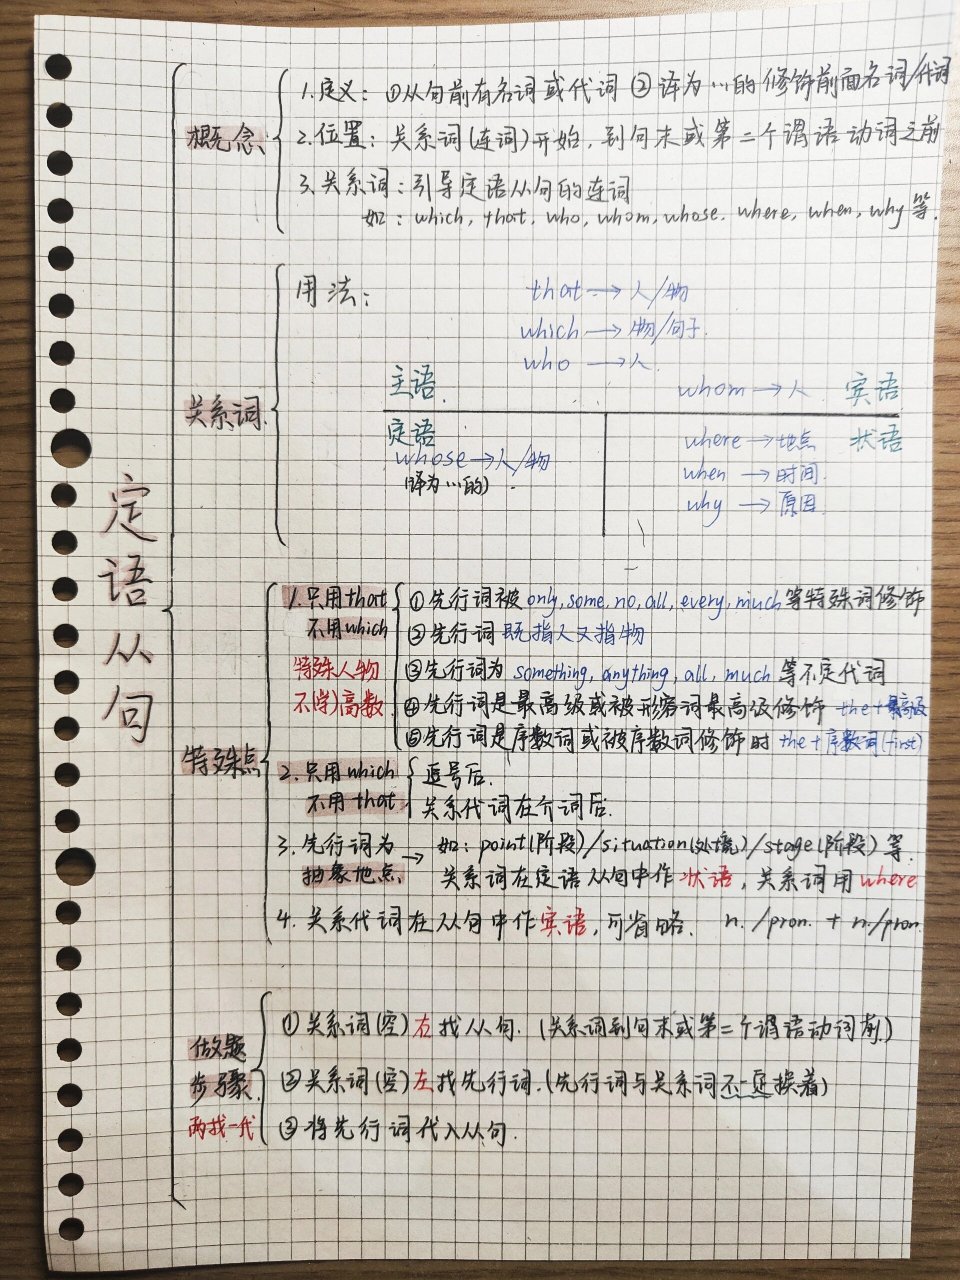 定语从句
概念
1.定义：①从句前有名词或代词 ②译为…的 修饰前面名词/代词
2.位置：关系词(连词)开始，到句末或第二个谓语动词之前
3.关系词：引导定语从句的连词
如：which, that, who, whom, whose, where, when, why 等.
关系词.
用法：
that → 人/物
which → 物/句子.
who → 人.
主语.
whom → 人. 宾语
定语
whose → 人/物
(译为…的).
where → 地点 状语
when → 时间.
why → 原因.
特殊点
1.只用that
不用which
特殊人物
不(学)高数.
①先行词被 only, some, no, all, every, much 等特殊词修饰
②先行词 既指人又指物
③先行词为 something, anything, all, much 等不定代词
④先行词是最高级或被形容词最高级修饰 the+最高级
⑤先行词是序数词或被序数词修饰时 the+序数词(first)
2.只用which
不用that
逗号后.
关系代词在介词后.
3.先行词为
抽象地点.
→ 如：point(阶段)/situation(处境)/stage(阶段)等.
关系词在定语从句中作状语，关系词用where
4.关系代词在从句中作宾语，可省略. n./pron. + n./pron.
做题
步骤.
两找一代
①关系词(空)右找从句.(关系词到句末或第二个谓语动词前.)
②关系词(空)左找先行词.(先行词与关系词不一定挨着)
③将先行词代入从句.